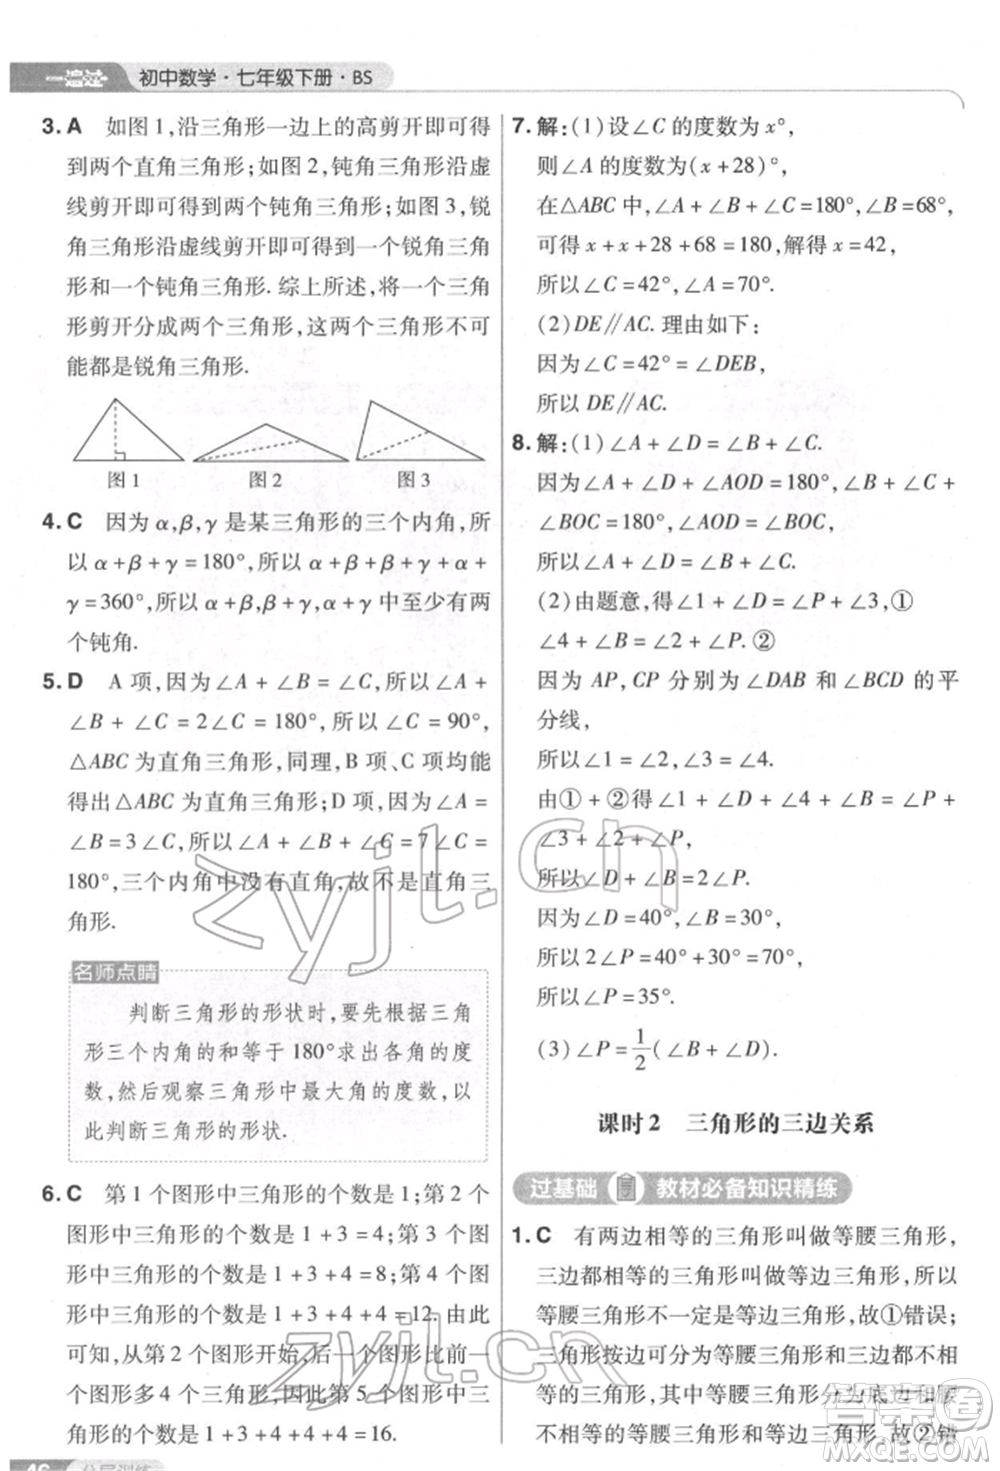 一遍过 初中数学·七年级下册·BS
3. A 如图1,沿三角形一边上的高剪开即可得
到两个直角三角形;如图2,钝角三角形沿虚
线剪开即可得到两个钝角三角形.如图3,锐
角三角形沿虚线剪开即可得到一个锐角三角
形和一个钝角三角形.综上所述,将一个三角
形剪开分成两个三角形,这两个三角形不可
能都是锐角三角形.
图1 图2 图3
4. C 因为α,β,γ是某三角形的三个内角,所
以α+β+γ=180°,所以α+β+β+γ+α+
γ=360°,所以α+β,β+γ,γ+α中至少有两
个钝角.
5. D A项,因为∠A+∠B=∠C,所以∠A+
∠B+∠C=2∠C=180°,所以∠C=90°,
△ABC为直角三角形,同理,B项、C项均能
得出△ABC为直角三角形;D项,因为∠A=
∠B=3∠C,所以∠A+∠B+∠C=7∠C=
180°,三个内角中没有直角,故不是直角三
角形.
名师点睛
判断三角形的形状时,要先根据三角
形三个内角的和等于180°求出各角的度
数,然后观察三角形中最大角的度数,以
此判断三角形的形状.
6. C 第1个图形中三角形的个数是1;第2个
图形中三角形的个数是1+3=4;第3个图
形中三角形的个数是1+3+4=8;第4个图
形中三角形的个数是1+3+4+4=12.由此
可知,从第2个图形开始,后一个图形比前一
个图形多4个三角形,因此第5个图形中三角
形的个数是1+3+4+4+4=16.
46 分层训练
7. 解:(1)设∠C的度数为x°,
则∠A的度数为(x+28)°.
在△ABC中,∠A+∠B+∠C=180°,∠B=68°,
可得x+x+28+68=180,解得x=42,
所以∠C=42°,∠A=70°.
(2)DE∥AC.理由如下:
因为∠C=42°=∠DEB,
所以DE∥AC.
8. 解:(1)∠A+∠D=∠B+∠C.
因为∠A+∠D+∠AOD=180°,∠B+∠C
+∠BOC=180°,∠AOD=∠BOC,
所以∠A+∠D=∠B+∠C.
(2)由题意,得∠1+∠D=∠P+∠3,①
∠4+∠B=∠2+∠P.②
因为AP,CP分别为∠DAB和∠BCD的平
分线,
所以∠1=∠2,∠3=∠4.
由①+②得∠1+∠D+∠4+∠B=∠P
+∠3+∠2+∠P,
所以∠D+∠B=2∠P.
因为∠D=40°,∠B=30°,
所以2∠P=40°+30°=70°,
所以∠P=35°.
(3)∠P=1/2(∠B+∠D).
课时2 三角形的三边关系
过基础 教材必备知识精练
1. C 有两边相等的三角形叫做等腰三角形,
三边都相等的三角形叫做等边三角形,所以
等腰三角形不一定是等边三角形,故①错误;
三角形按边可分为等腰三角形和三边都不相
等的三角形,其中等腰三角形又分为底边和腰
不相等的等腰三角形和等边三角形,故②错
zyjl.cn
zyjl.cn
答案圈
MXQE.COM